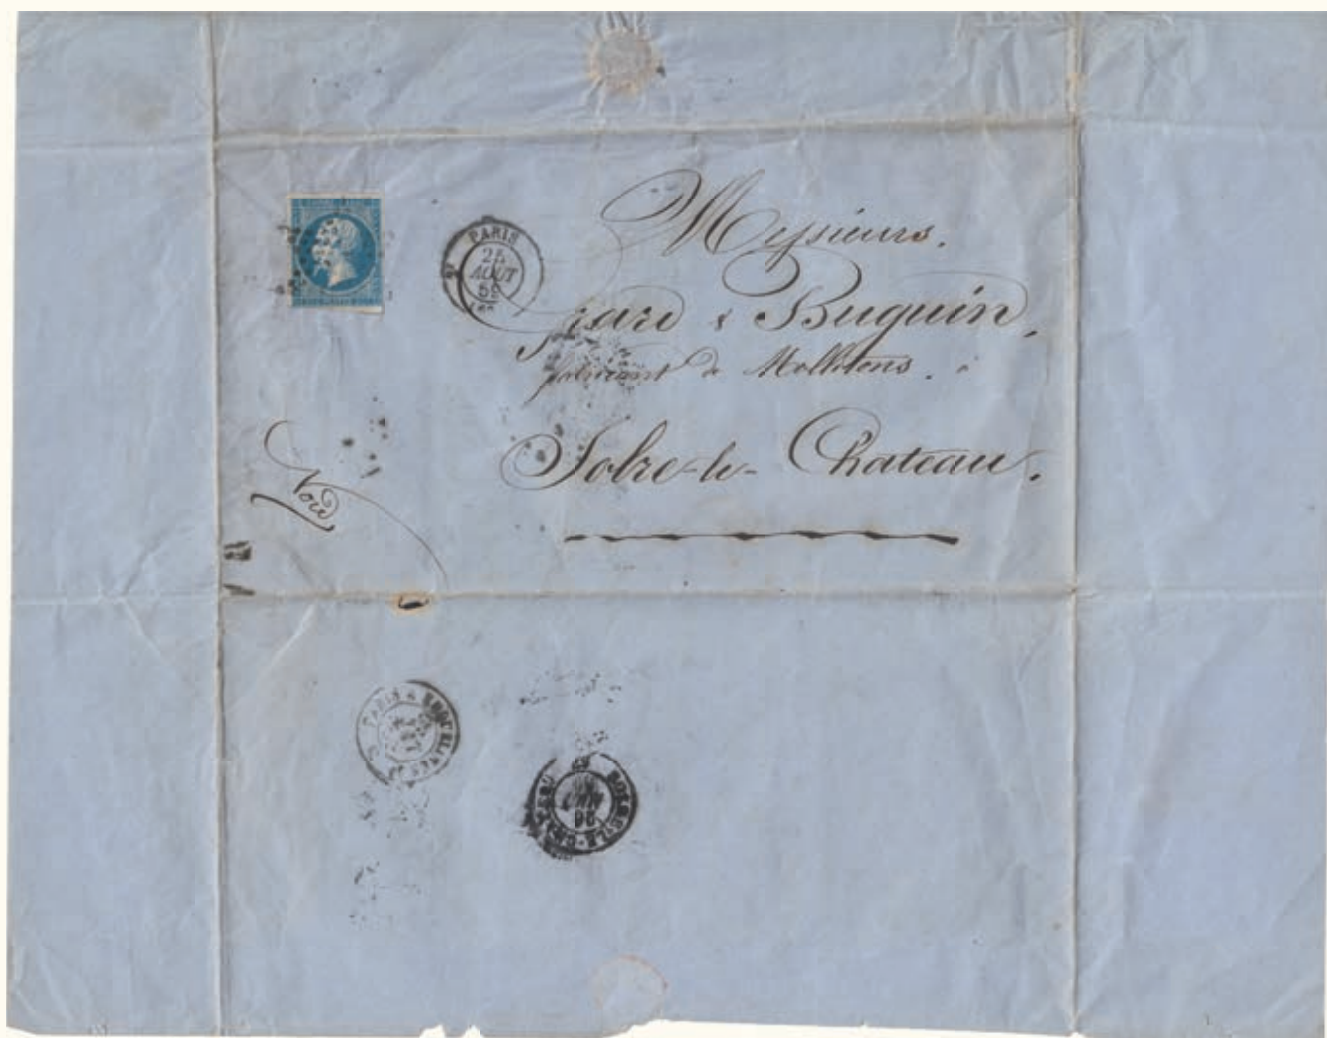 PARIS
25
AOUT
59
Messieurs.
& Buguin,
fabricant de Molletons.
Solre-le-Chateau.
Nord
PARIS A ERQUELINES
SOLRE-LE-CHATEAU
26
AOUT
59